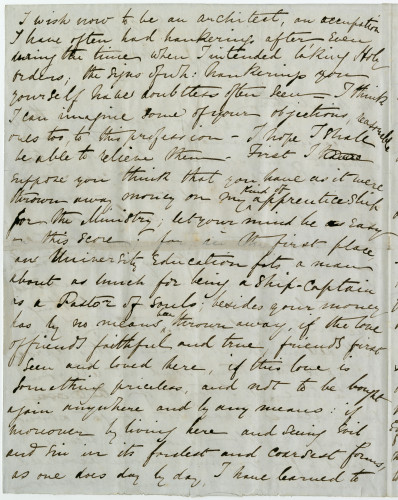 I wish now to be an architect, an occupation
I have often had hankerings after even
during the time when I intended taking Holy
orders; the signs of wh: hankerings you
yourself have doubtless often seen – I think
I can imagine some of your objections, reasonable
ones too, to this profession – I hope I shall
be able to relieve them – First I
suppose you think that you have as it were
thrown away money on my kind of apprenticeship
for the Ministry; let your mind be easy
on this score; for in the first place
an University Education fits a man
about as much for being a Ship-Captain
as a Pastor of Souls; besides your money
has by no means been thrown away, if the love
of friends faithful and true, friends first
seen and loved here, if this love is
something priceless, and not to be bought
again anywhere and by any means: if
moreover by living here and seeing evil
and sin in its foulest and coarsest forms,
as one does day by day, I have learned to